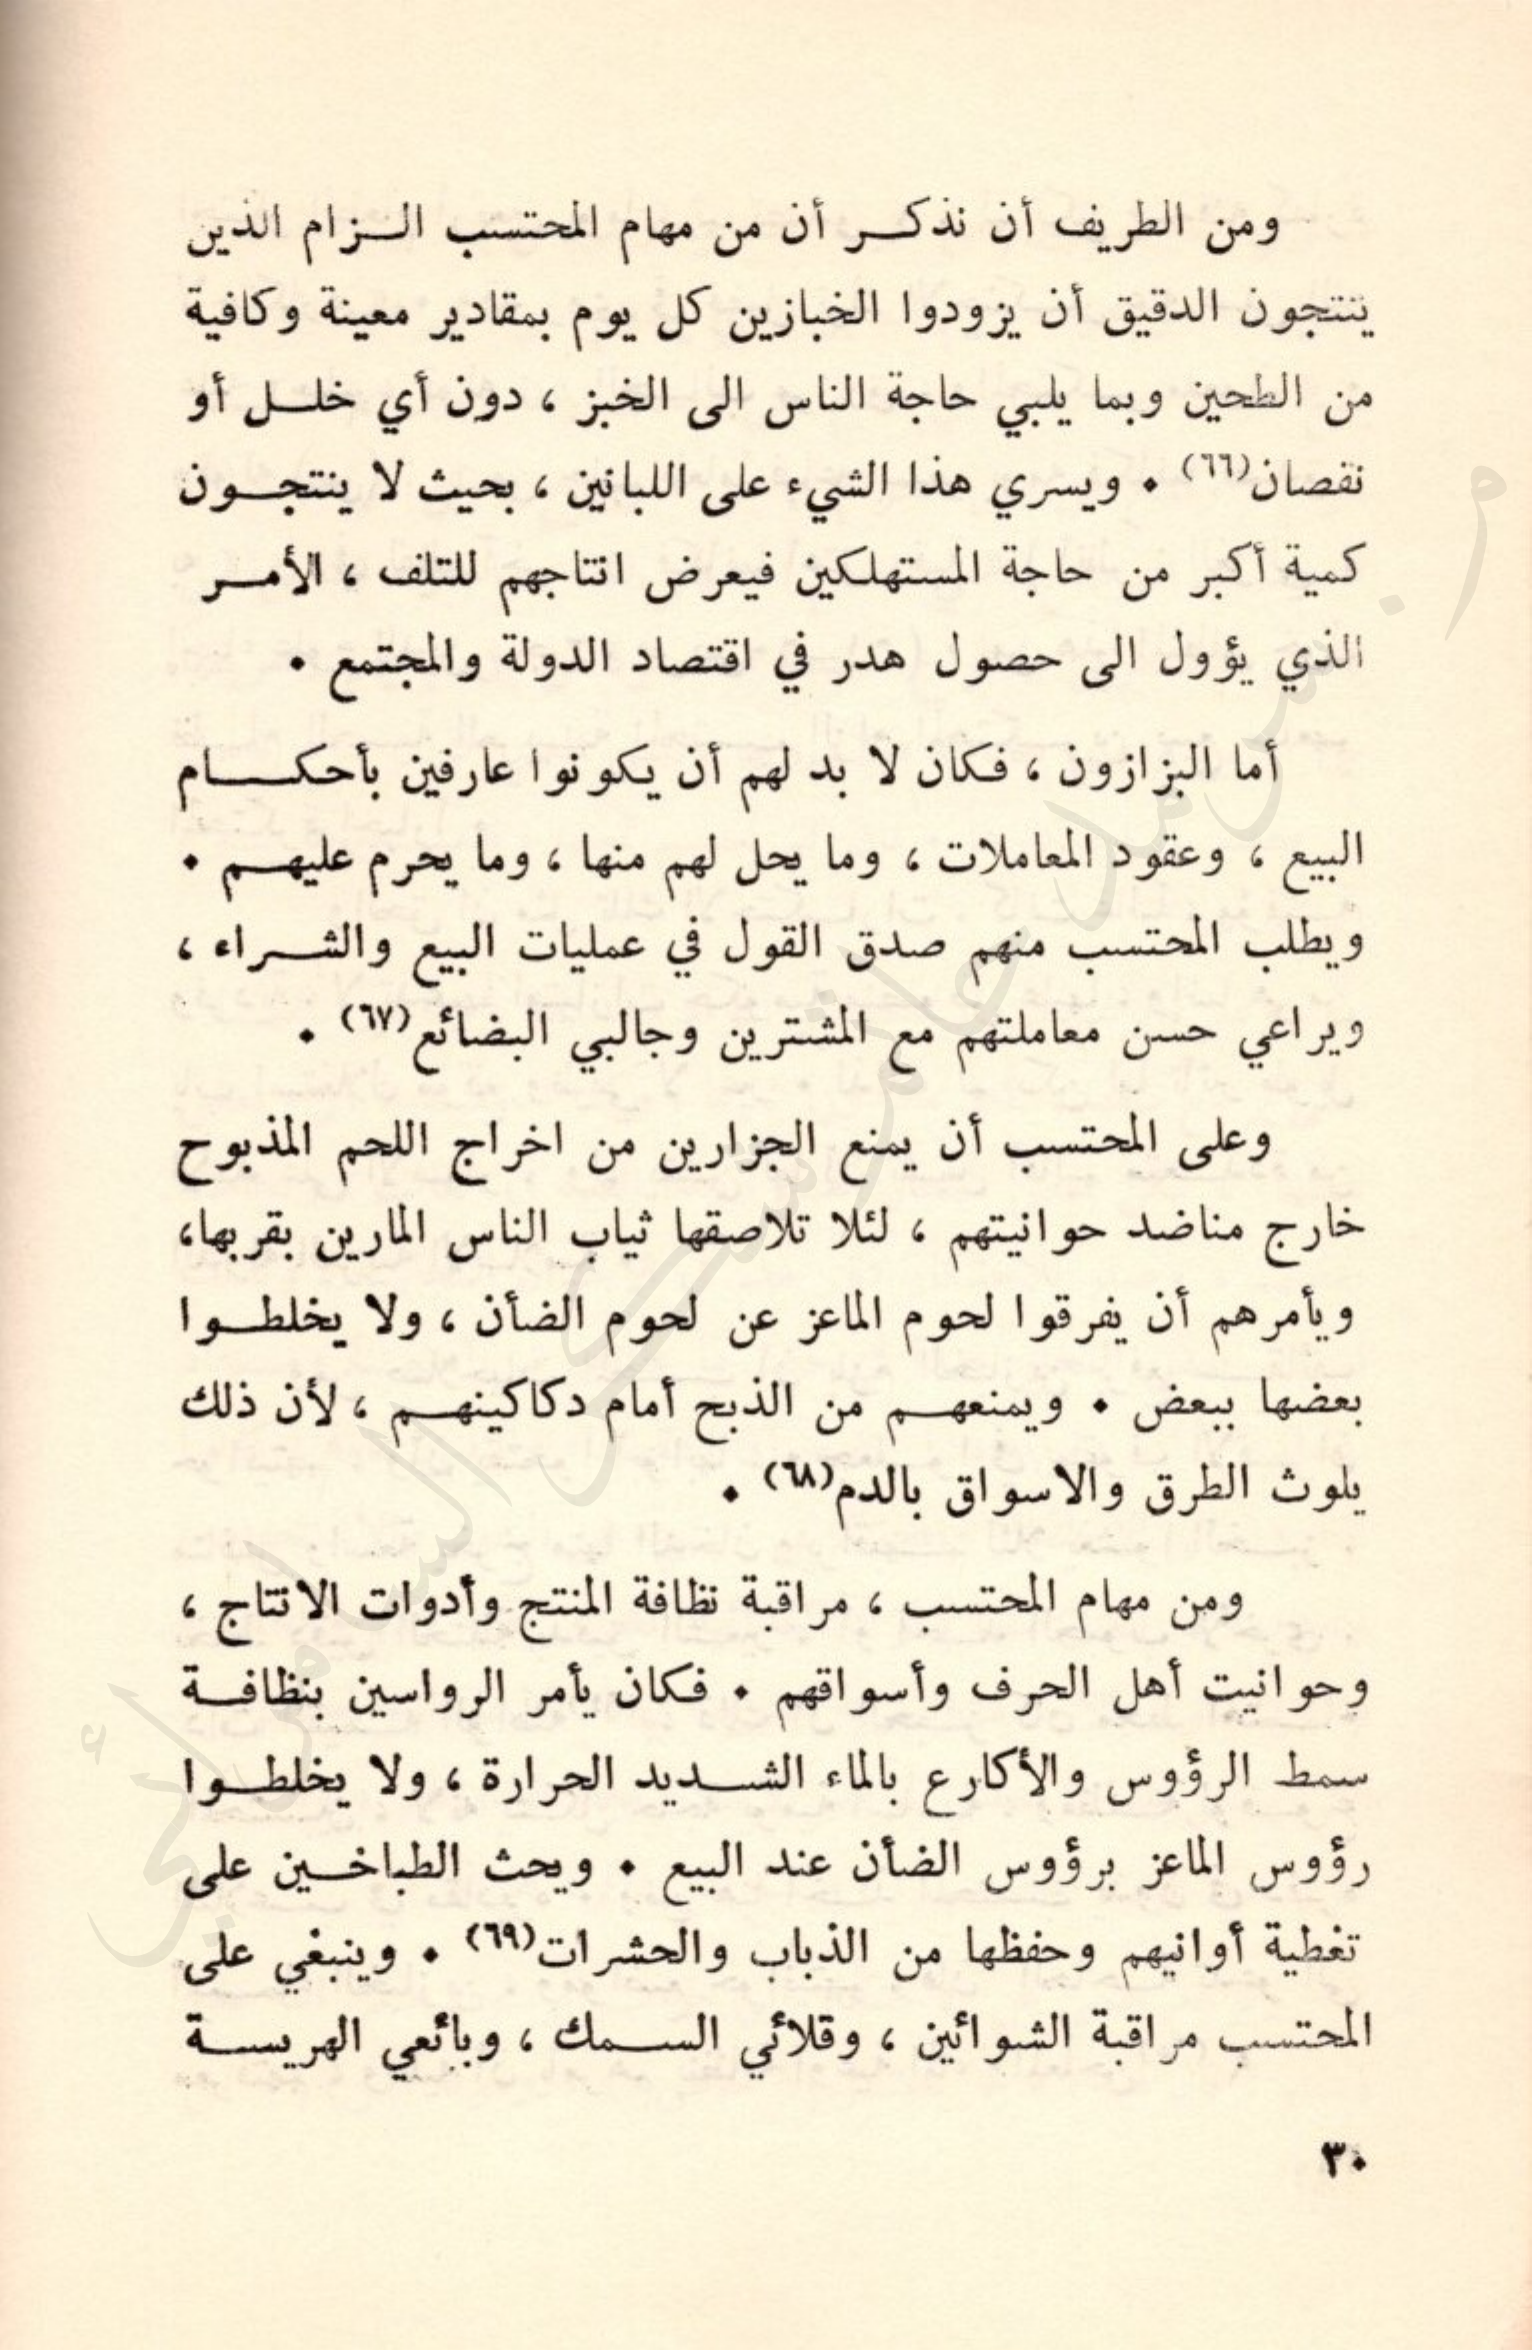 ومن الطريف أن نذكر أن من مهام المحتسب الزام الذين
ينتجون الدقيق أن يزودوا الخبازين كل يوم بمقادير معينة وكافية
من الطحين وبما يلبي حاجة الناس الى الخبز ، دون أي خلل أو
نقصان(٦٦) . ويسري هذا الشيء على اللبانين ، بحيث لا ينتجون
كمية أكبر من حاجة المستهلكين فيعرض انتاجهم للتلف ، الأمر
الذي يؤول الى حصول هدر في اقتصاد الدولة والمجتمع .
أما البزازون ، فكان لا بد لهم أن يكونوا عارفين بأحكام
البيع ، وعقود المعاملات ، وما يحل لهم منها ، وما يحرم عليهم .
ويطلب المحتسب منهم صدق القول في عمليات البيع والشراء ،
ويراعي حسن معاملتهم مع المشترين وجالبي البضائع(٦٧) .
وعلى المحتسب أن يمنع الجزارين من اخراج اللحم المذبوح
خارج مناضد حوانيتهم ، لئلا تلاصقها ثياب الناس المارين بقربها،
ويأمرهم أن يفرقوا لحوم الماعز عن لحوم الضأن ، ولا يخلطوا
بعضها ببعض . ويمنعهم من الذبح أمام دكاكينهم ، لأن ذلك
يلوث الطرق والاسواق بالدم(٦٨) .
ومن مهام المحتسب ، مراقبة نظافة المنتج وأدوات الانتاج ،
وحوانيت أهل الحرف وأسواقهم . فكان يأمر الرواسين بنظافة
سمط الرؤوس والأكارع بالماء الشديد الحرارة ، ولا يخلطوا
رؤوس الماعز برؤوس الضأن عند البيع . ويحث الطباخين على
تغطية أوانيهم وحفظها من الذباب والحشرات(٦٩) . وينبغي على
المحتسب مراقبة الشوائين ، وقلائي السمك ، وبائعي الهريسة
٣٠